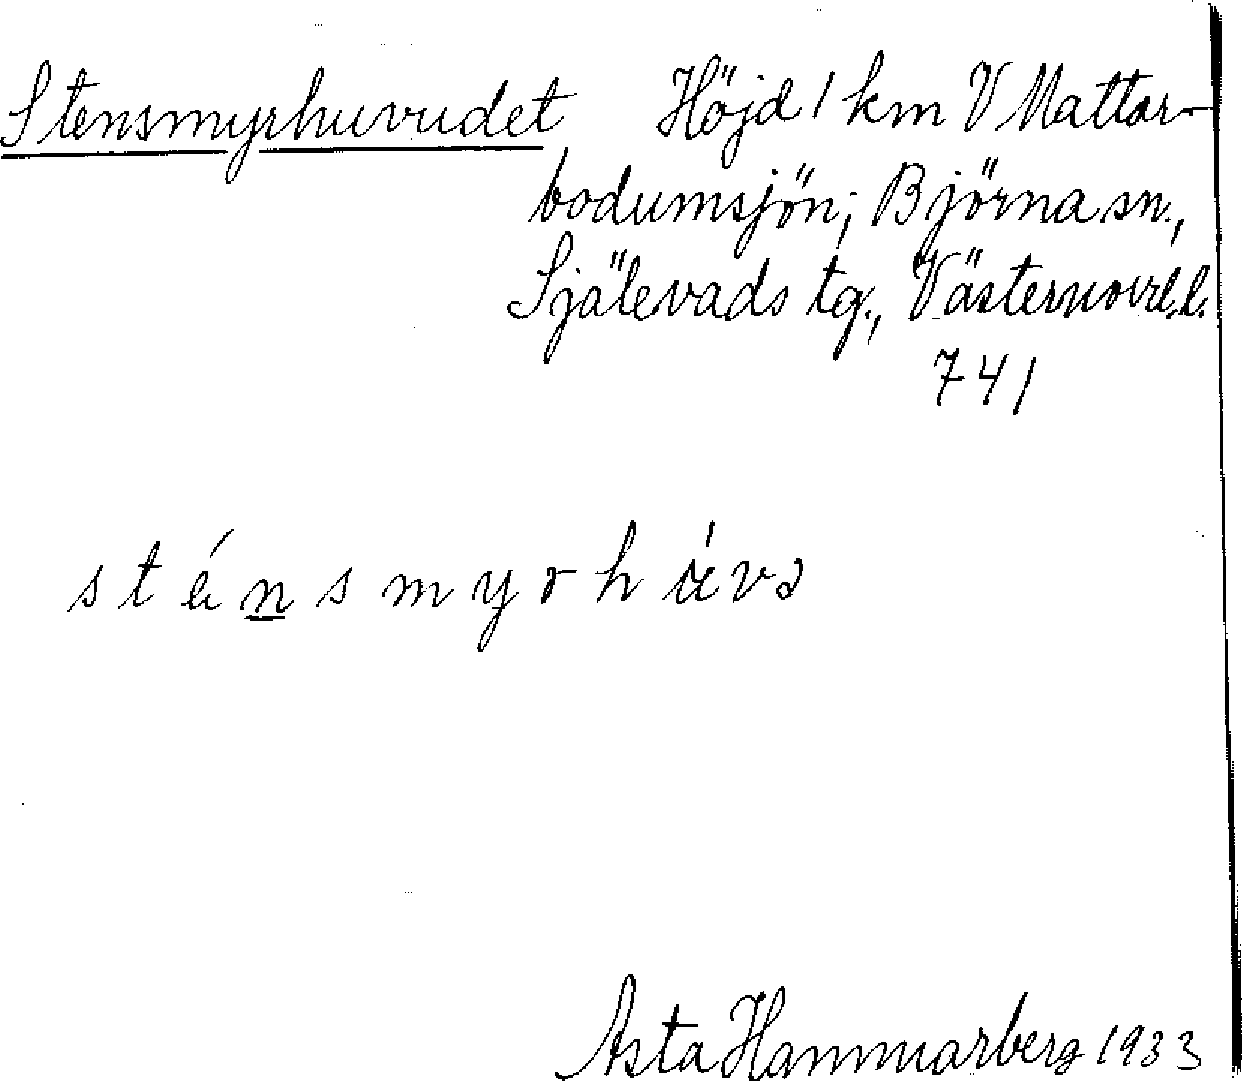 Stensmyrhuvudet Höjd 1 km V Mattar-
bodumsjön; Björna sn.,
Själevads tg., Västernorrl. l.
741
sténsmyrhúvə
Asta Hammarberg 1933